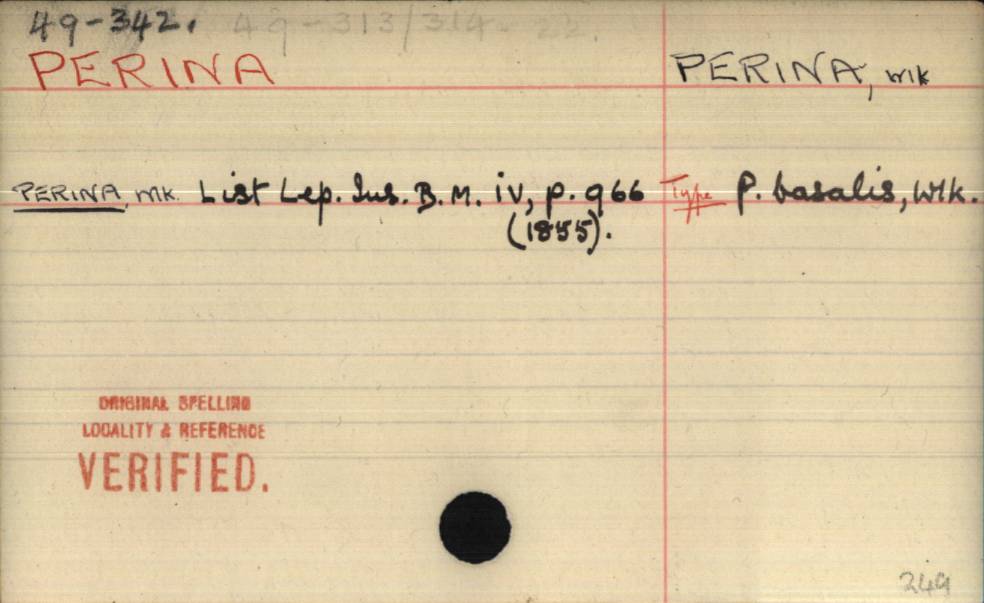 49-342. 49-313/314. 22.
PERINA PERINA, Wlk
PERINA, Wlk. List Lep. Ins. B.M. iv, p. 966 Type P. basalis, Wlk.
(1855).
ORIGINAL SPELLING
LOCALITY & REFERENCE
VERIFIED.
249